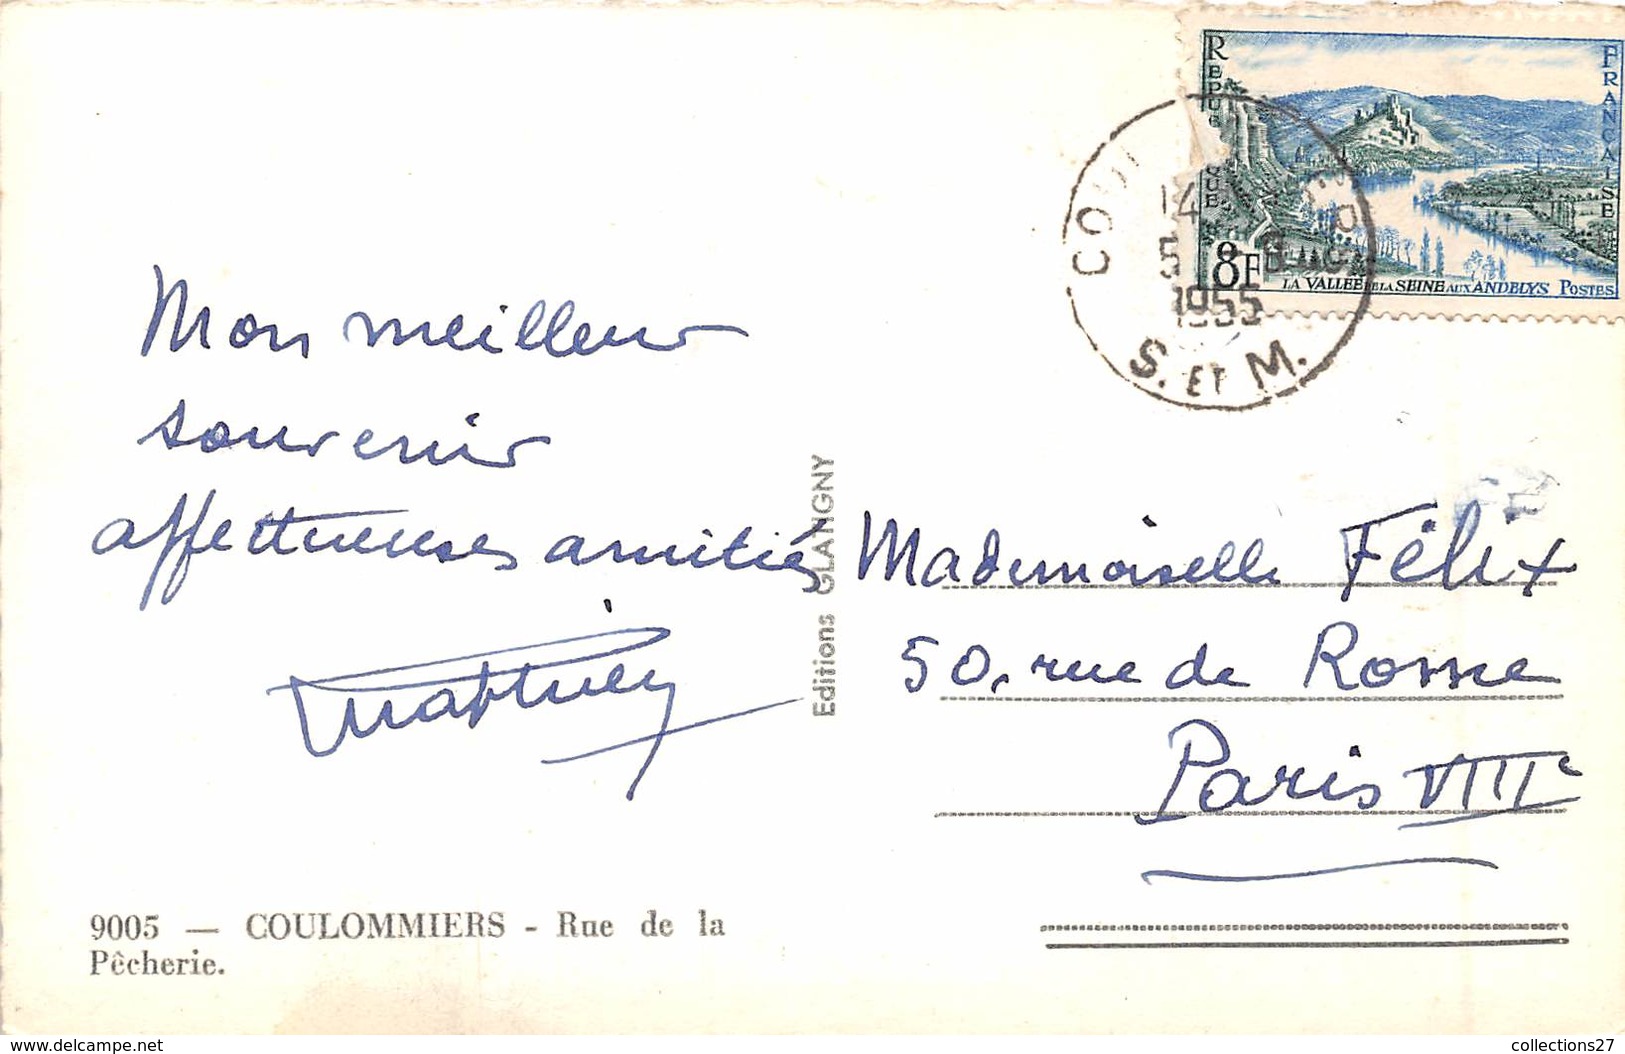 RÉPUBLIQUE FRANÇAISE
8F
LA VALLÉE DE LA SEINE AUX ANDELYS POSTES
14
5 - 8
1955
S. ET M.
Mon meilleur
souvenir
affectueuses amitiés
Editions GLATIGNY
Mademoiselle Félix
50, rue de Rome
Paris VIIIe
9005 — COULOMMIERS - Rue de la
Pêcherie.
delcampe.net
collections27